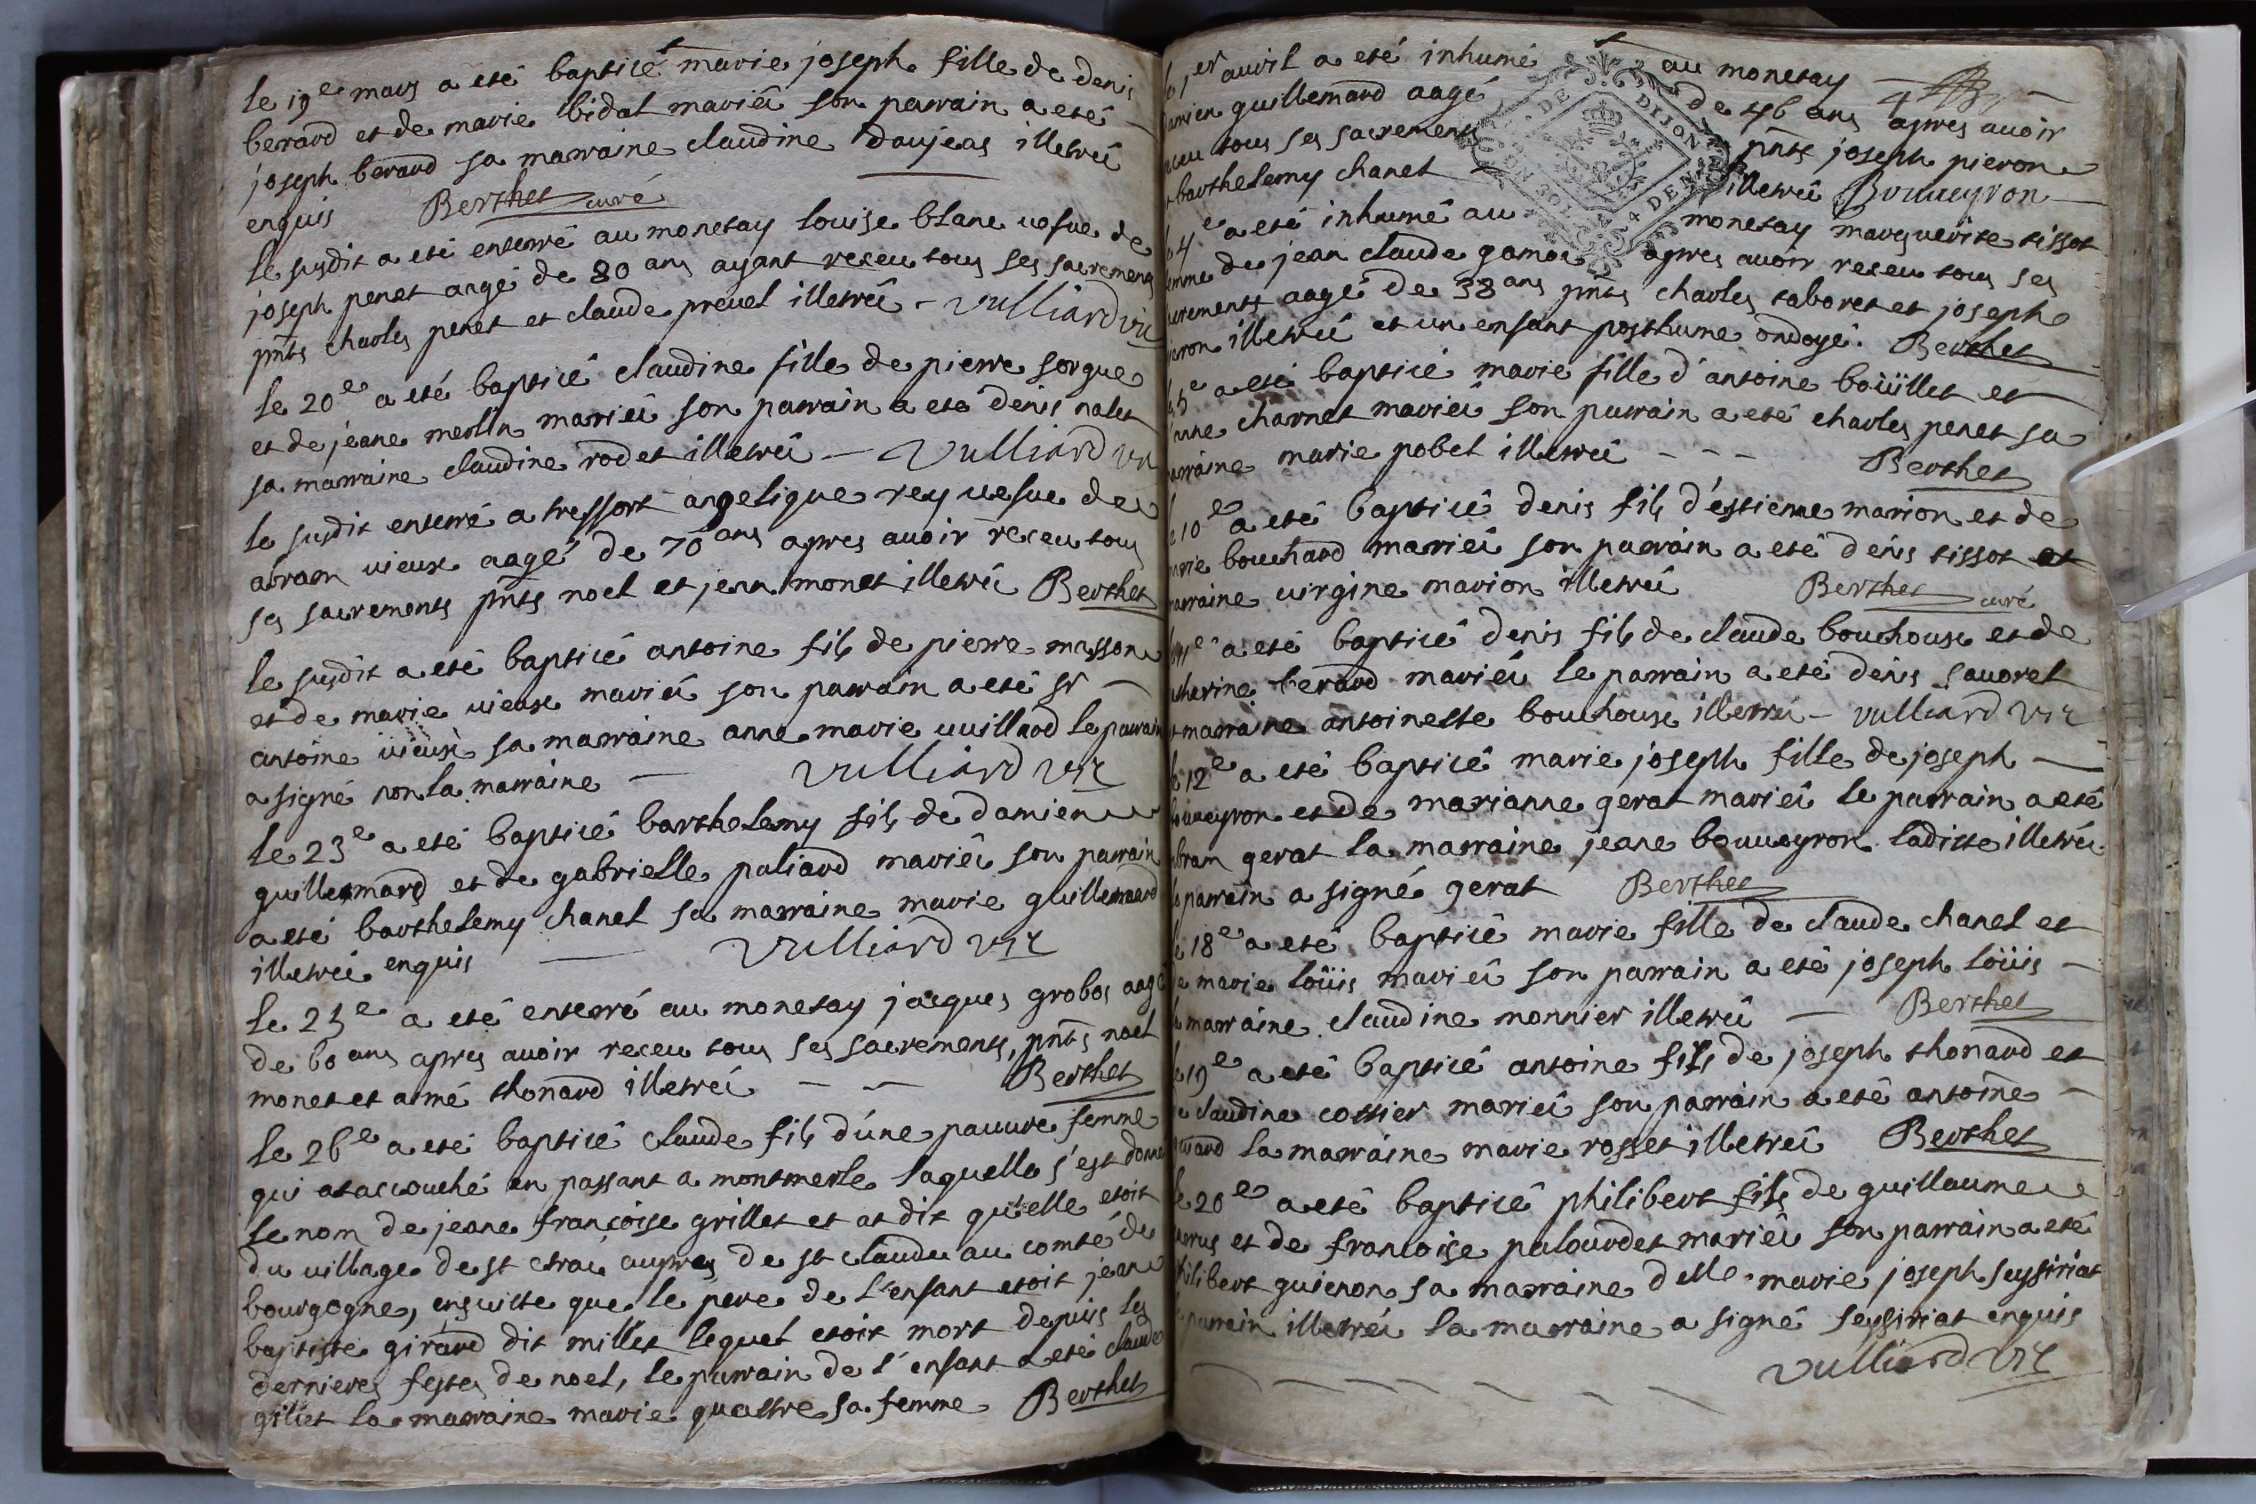 le 19e mars a eté baptisé marie joseph fille de denis
berard et de marie bidal mariéi son parrain a eté
joseph berard sa marraine claudine daujeas illetréi
enquis Berthet curé
le susdit a eté enterré au monetay louise blanc vefue de
joseph penet aagé de 80 ans ayant receu tous ses sacremens
pnts charles penet et claude prevel illetréi - Vulliard vic
le 20e a eté baptisé claudine fille de pierre sorgue
et de jeane merlin mariéi son parrain a eté denis nalet
sa marraine claudine rodet illetréi - Vulliard vic
le susdit enterré a tressort angelique rey uefue de
abram vieux aagé de 70 ans apres auoir receu tous
ses sacrements pnts noel et jean monet illetréi Berthet
le susdit a eté baptisé antoine fils de pierre masson
et de marie vieux mariéi son parrain a eté sr -
antoine vieux sa marraine anne marie uuillard le parrain
a signé non la marraine - Vulliard vic
le 23e a eté baptisé barthelemy fils de damien
guillemard et de gabrielle paliard mariéi son parrain
a eté barthelemy chanel sa marraine marie guillemard
illetréi enquis - Vulliard vic
le 25e a eté enterré au monetay jacques grobos aagé
de 60 ans apres auoir receu tous ses sacrements, pnts noel
monet et aimé thonard illetréi - - Berthet
le 26e a eté baptisé claude fils d'une pauure femme
qui at accouché en passant a montmerle laquelle s'est donné
le nom de jeane françoise grillet et at dit qu'elle etoit
du village de st aupres de st claude au comté de
bourgogne, ensuitte que le pere de l'enfant etoit jean
baptiste girard dit millet lequel etoit mort depuis les
dernieres festes de noel, le parrain de l'enfant a eté claude
gillet la marraine marie quattre sa femme Berthet
le 1er auril a eté inhumé au monetay -
damien guillemard aagé de 46 ans apres auoir
receu tous ses sacrements pnts joseph pieron
et barthelemy chanel - illetréi Bouueyron
le 4e a eté inhumé au monetay marguerite tissot
femme de jean claude gamos apres auoir receu tous ses
sacrements aagé de 38 ans pnts charles taboret et joseph
pieron illetréi et un enfant posthume ondoyé. Berthet
le 5e a eté baptisé marie fille d'antoine boüillet et
d'anne charnet mariéi son parrain a eté charles penet sa
marraine marie pobel illetréi - - - Berthet
le 10e a eté baptisé denis fils d'estienne marion et de
marie bouchard mariéi son parrain a eté denis tissot et
marraine virgine marion illetréi Berthet curé
le 11e a eté baptisé denis fils de claude bouchoux et de
catherine berard mariéi le parrain a eté denis sauorel
et marraine antoinette bouchoux illetréi - Vulliard vic
le 12e a eté baptisé marie joseph fille de joseph -
bouueyron et de marianne gerat mariéi le parrain a eté
abram gerat la marraine jeane bouueyron laditte illetréi
le parrain a signé gerat Berthet
le 18e a eté baptisé marie fille de claude chanel et
de marie loüis mariéi son parrain a eté joseph loüis -
la marraine claudine monnier illetréi - Berthet
le 19e a eté baptisé antoine fils de joseph thonard et
de claudine cottier mariéi son parrain a eté antoine -
thonard la marraine marie rosset illetréi Berthet
le 20e a eté baptisé philibert fils de guillaume
et de francoise palourdet mariéi son parrain a eté
philibert guienon sa marraine delle marie joseph seysiriat
le parrain illetréi la marraine a signé seysiriat enquis
Vulliard vic